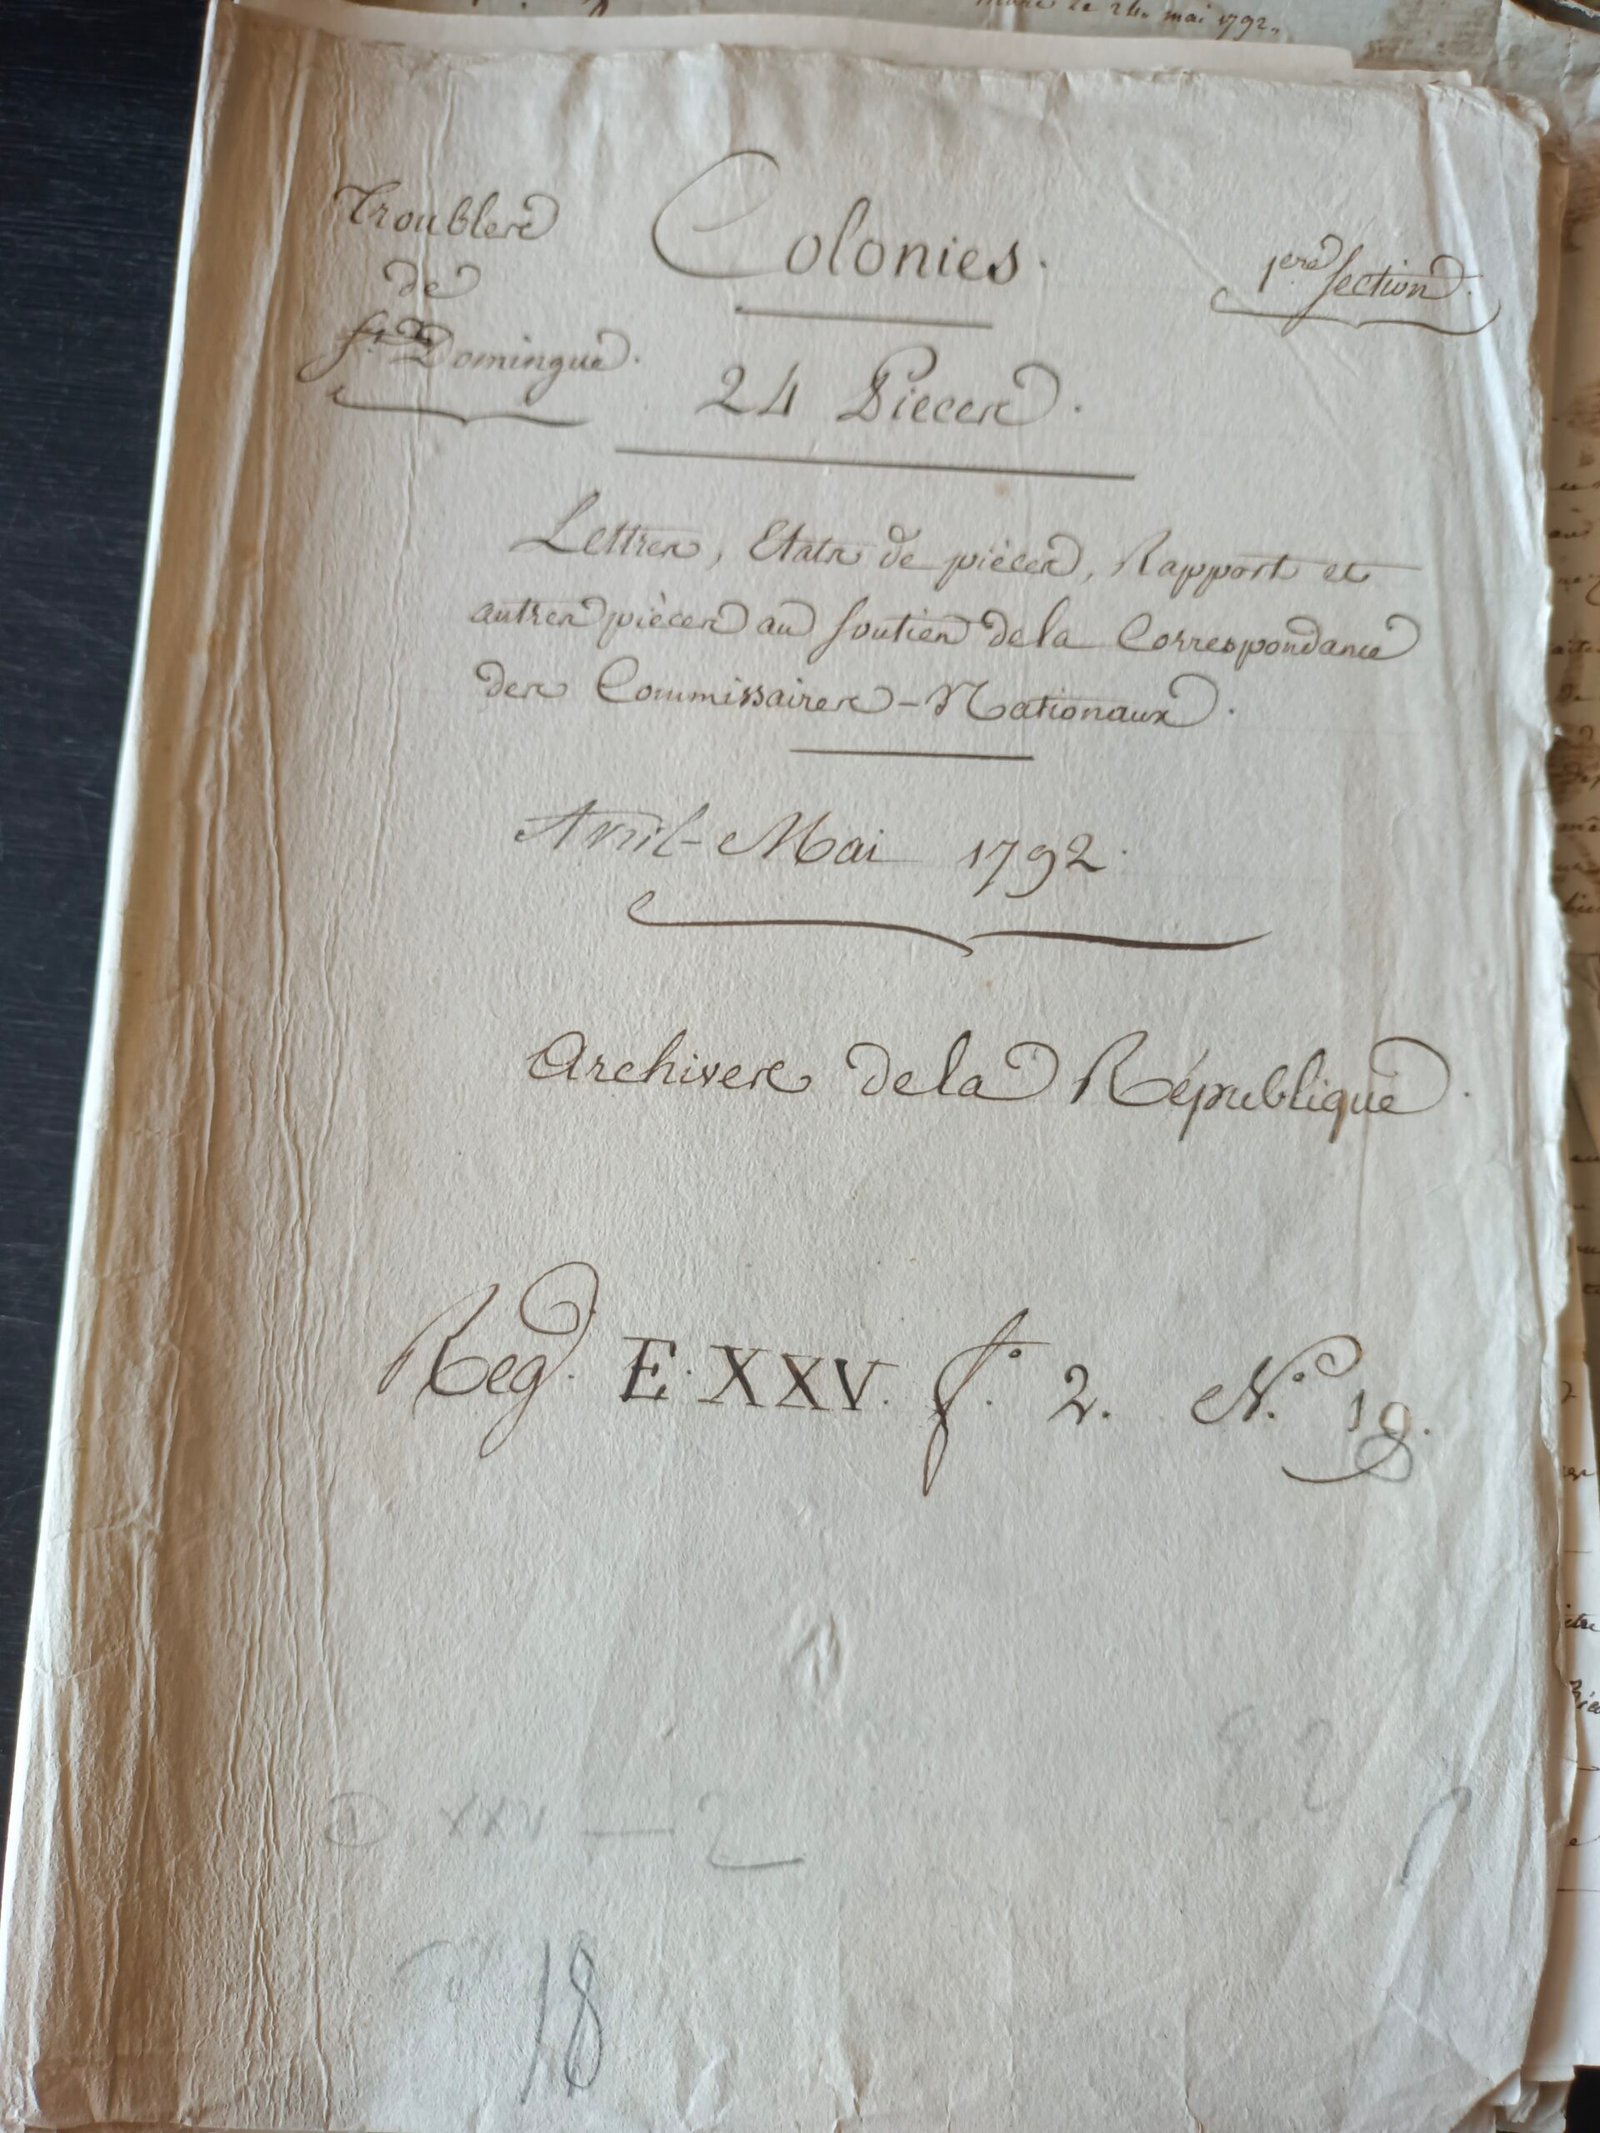 mare le 24. mai 1792.
Troubles
de
St. Domingue.
Colonies.
1ere Section.
24 Pieces.
Lettres, Etats de pièces, Rapport et
autres pièces au soutien de la Correspondance
des Commissaires-Nationaux.
Avril-Mai 1792.
Archives de la République.
Reg. E. XXV. f.° 2. N.° 19.
D XXV — 2
18